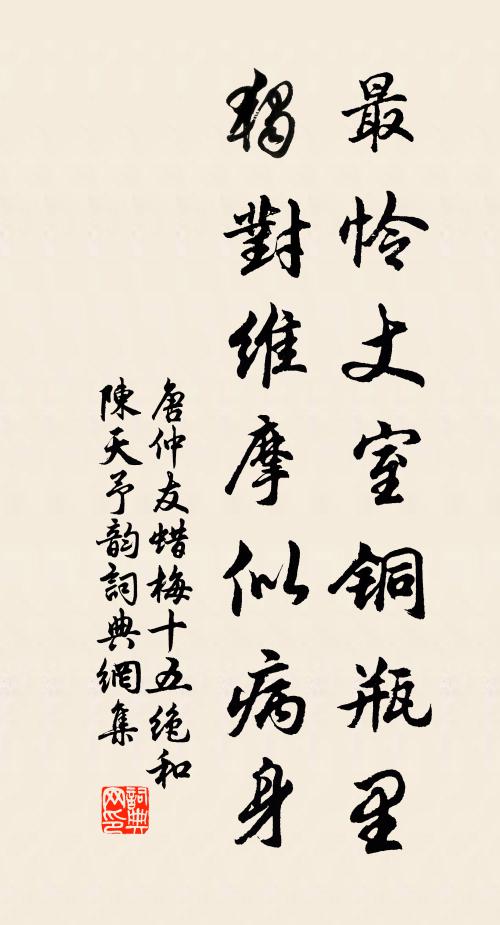 最怜丈室铜瓶里
獨對維摩似病身
唐仲友蜡梅十五绝和
陳天予韵詞典網集
詞典網印